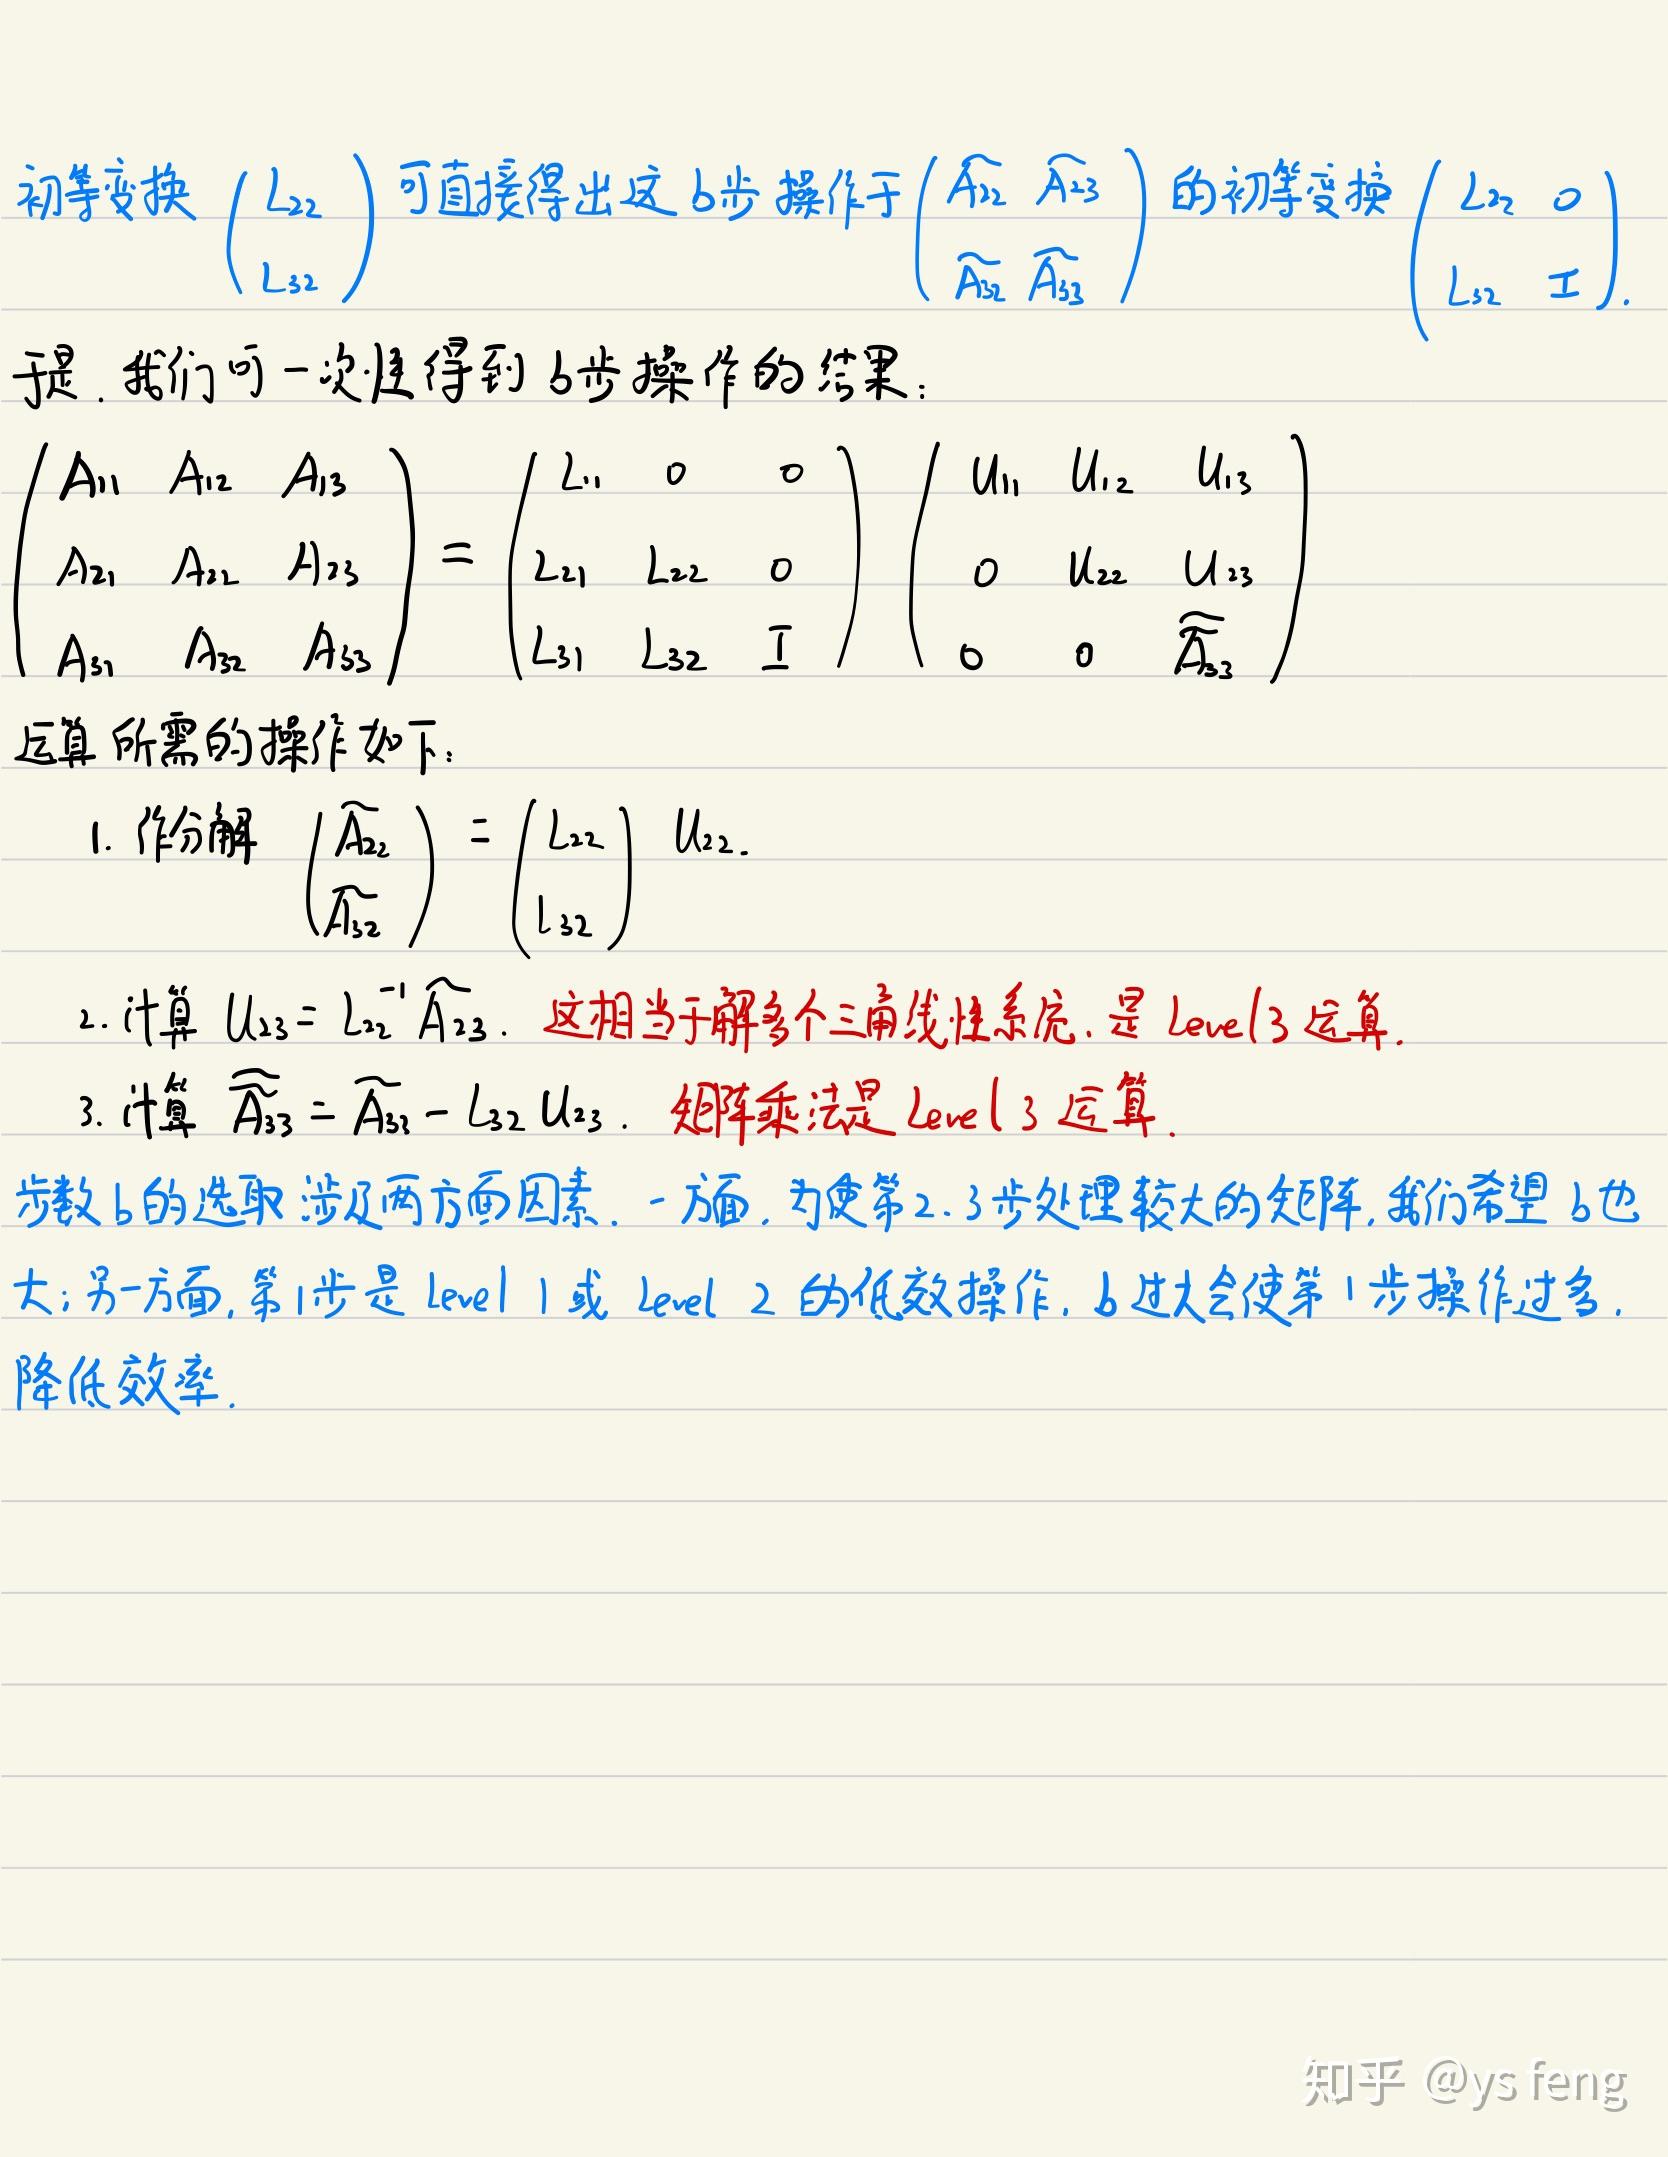 初等变换 (L22 L32) 可直接得出这 b步 操作于 (Ã22 Ã23 Ã32 Ã33) 的初等变换 (L22 0 L32 I).
于是.我们可一次性得到 b步操作的结果:
(A11 A12 A13 = (L11 0 0 (U11 U12 U13
A21 A22 A23 L21 L22 0 0 U22 U23
A31 A32 A33) L31 L32 I) 0 0 Ã̃33)
运算所需的操作如下:
1. 作分解 (Ã22 Ã32) = (L22 L32) U22.
2. 计算 U23 = L22⁻¹ Ã23. 这相当于解多个三角线性系统,是 Level 3 运算.
3. 计算 Ã̃33 = Ã33 - L32 U23. 矩阵乘法是 Level 3 运算.
步数 b的选取涉及两方面因素.一方面,为使第2.3步处理较大的矩阵,我们希望 b也
大;另一方面,第1步是 Level 1 或 Level 2 的低效操作,b过大会使第1步操作过多.
降低效率.
知乎 @ys feng